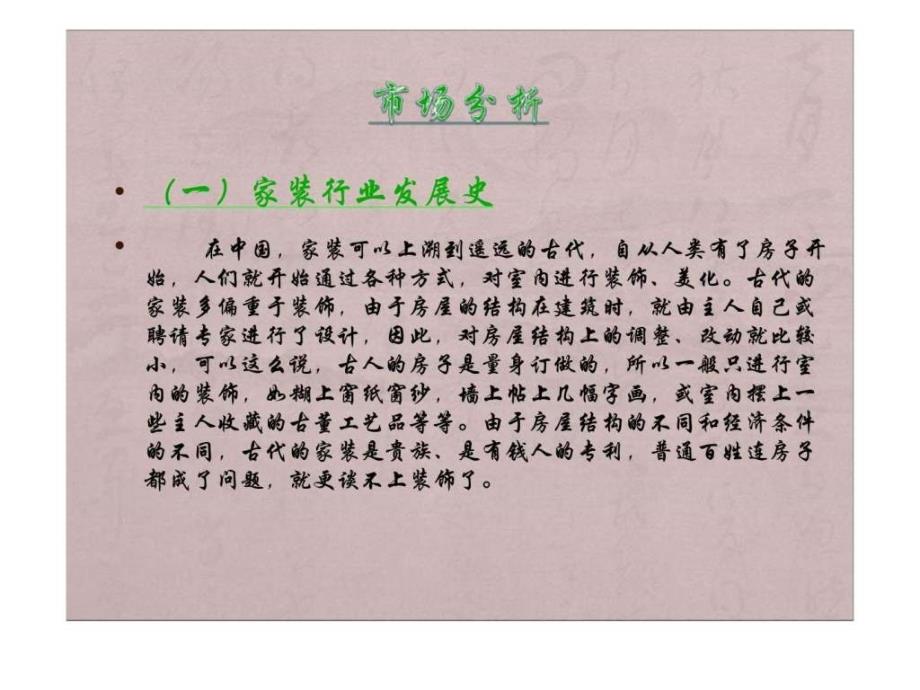 市场分析
• （一）家装行业发展史
• 在中国，家装可以上溯到遥远的古代，自从人类有了房子开
始，人们就开始通过各种方式，对室内进行装饰、美化。古代的
家装多偏重于装饰，由于房屋的结构在建筑时，就由主人自己或
聘请专家进行了设计，因此，对房屋结构上的调整、改动就比较
小，可以这么说，古人的房子是量身订做的，所以一般只进行室
内的装饰，如糊上窗纸窗纱，墙上帖上几幅字画，或室内摆上一
些主人收藏的古董工艺品等等。由于房屋结构的不同和经济条件
的不同，古代的家装是贵族、是有钱人的专利，普通百姓连房子
都成了问题，就更谈不上装饰了。